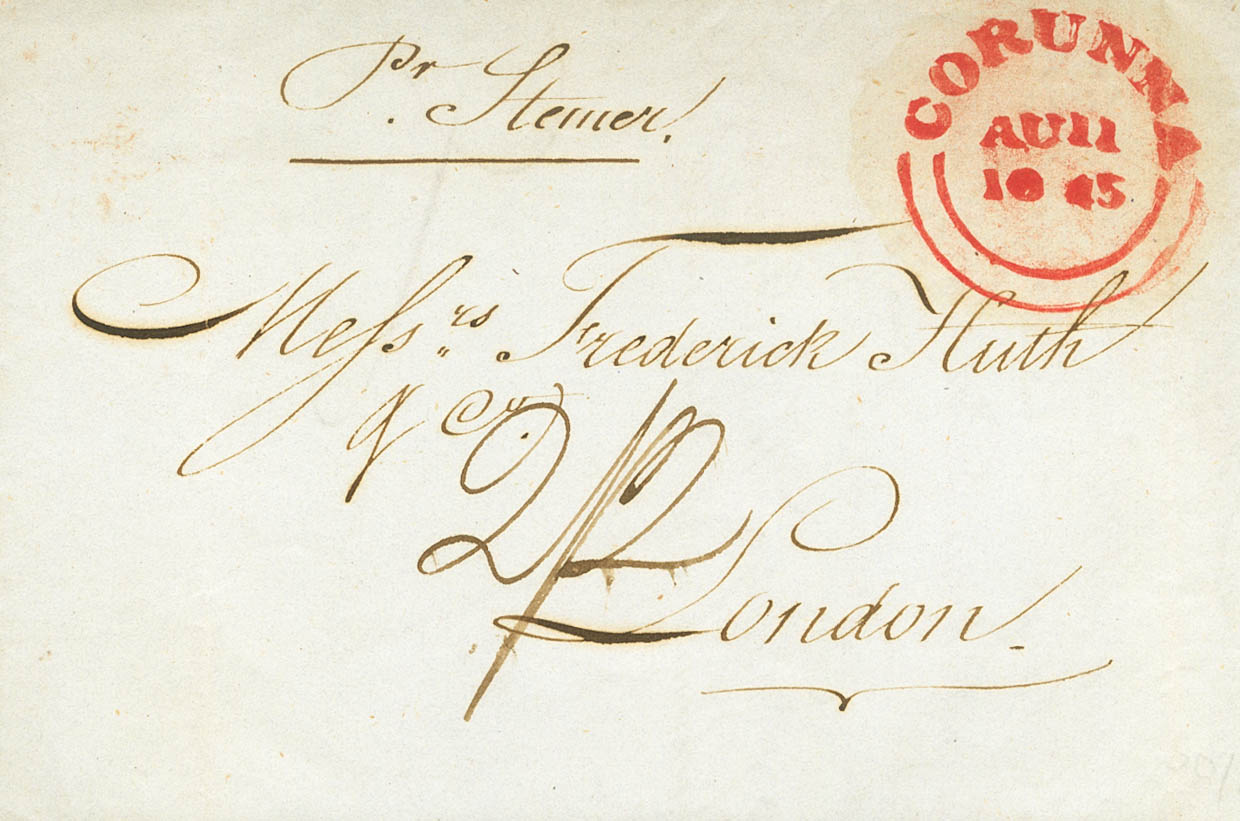 pr. Stemer.
CORUNNA
AU 11
1845
Messrs Frederick Huth
& Co.
2/2
London.